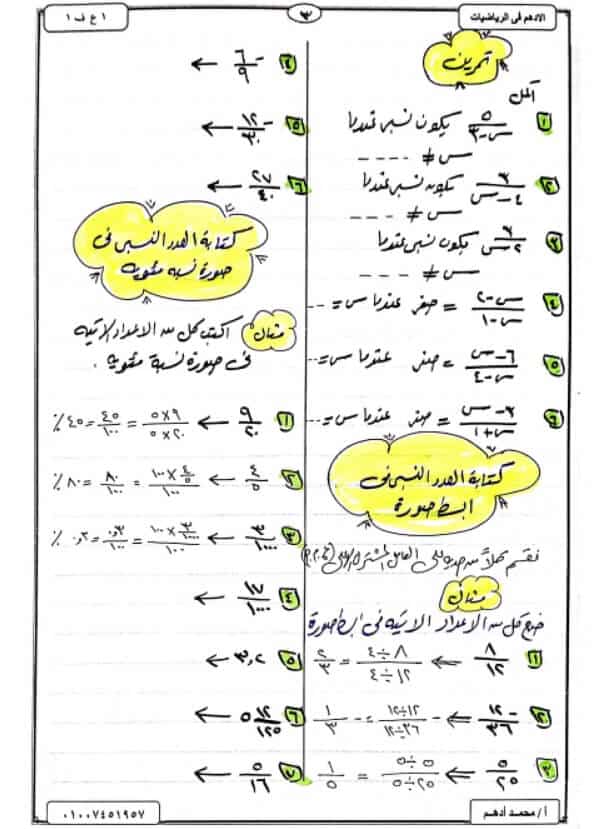 الادهم في الرياضيات
٣
١ ع ف ١
تمرين
أكمل
١ ٥/(س-٣) يكون نسبى عندما
س ≠ ----
٢ ٣/(٤-س) يكون نسبى عندما
س ≠ ---
٣ ٦/(٢-س) يكون نسبى عندما
س ≠ ---
٤ (س-٢)/(س-١) = صفر عندما س = --
٥ (٦-س)/(س-٤) = صفر عندما س = ---
٦ (٣-س)/(س+١) = صفر عندما س = ---
كتابة العدد النسبى فى
ابسط صورة
نقسم كلاً من حديه على العامل المشترك الأعلى (ع.م.أ)
مثال
ضع كل من الاعداد الاتيه فى ابسط صورة
١ ٨/١٢ ⇐ (٨÷٤)/(١٢÷٤) = ٢/٣
٢ -١٢/٣٦ ⇐ -(١٢÷١٢)/(٣٦÷١٢) = -١/٣
٣ ٥/٢٥ ⇐ (٥÷٥)/(٢٥÷٥) = ١/٥
٤ -٦/٩ ←
٥ -١٢/٣٠ ←
٦ ٢٧/٤٠ ←
كتابة العدد النسبى فى
صورة نسبة مئوية
مثال اكتب كل من الاعداد الاتيه
فى صورة نسبة مئوية .
١ ٩/٢٠ ← (٩×٥)/(٢٠×٥) = ٤٥/١٠٠ = ٤٥٪
٢ ٤/٥ ← (٤/٥×١٠٠)/١٠٠ = ٨٠/١٠٠ = ٨٠٪
٣ ٣/١٠٠٠ ← (٣/١٠٠٠×١٠٠)/١٠٠ = ٠,٣/١٠٠ = ٠,٣٪
٤ ١٧/١٠٠٠ ←
٥ ٣,٢ ←
٦ ٥ ١٢/١٢٥ ←
٧ ٥/١٦ ←
أ / محمد أدهم
٠١٠٠٧٤٥١٩٥٧